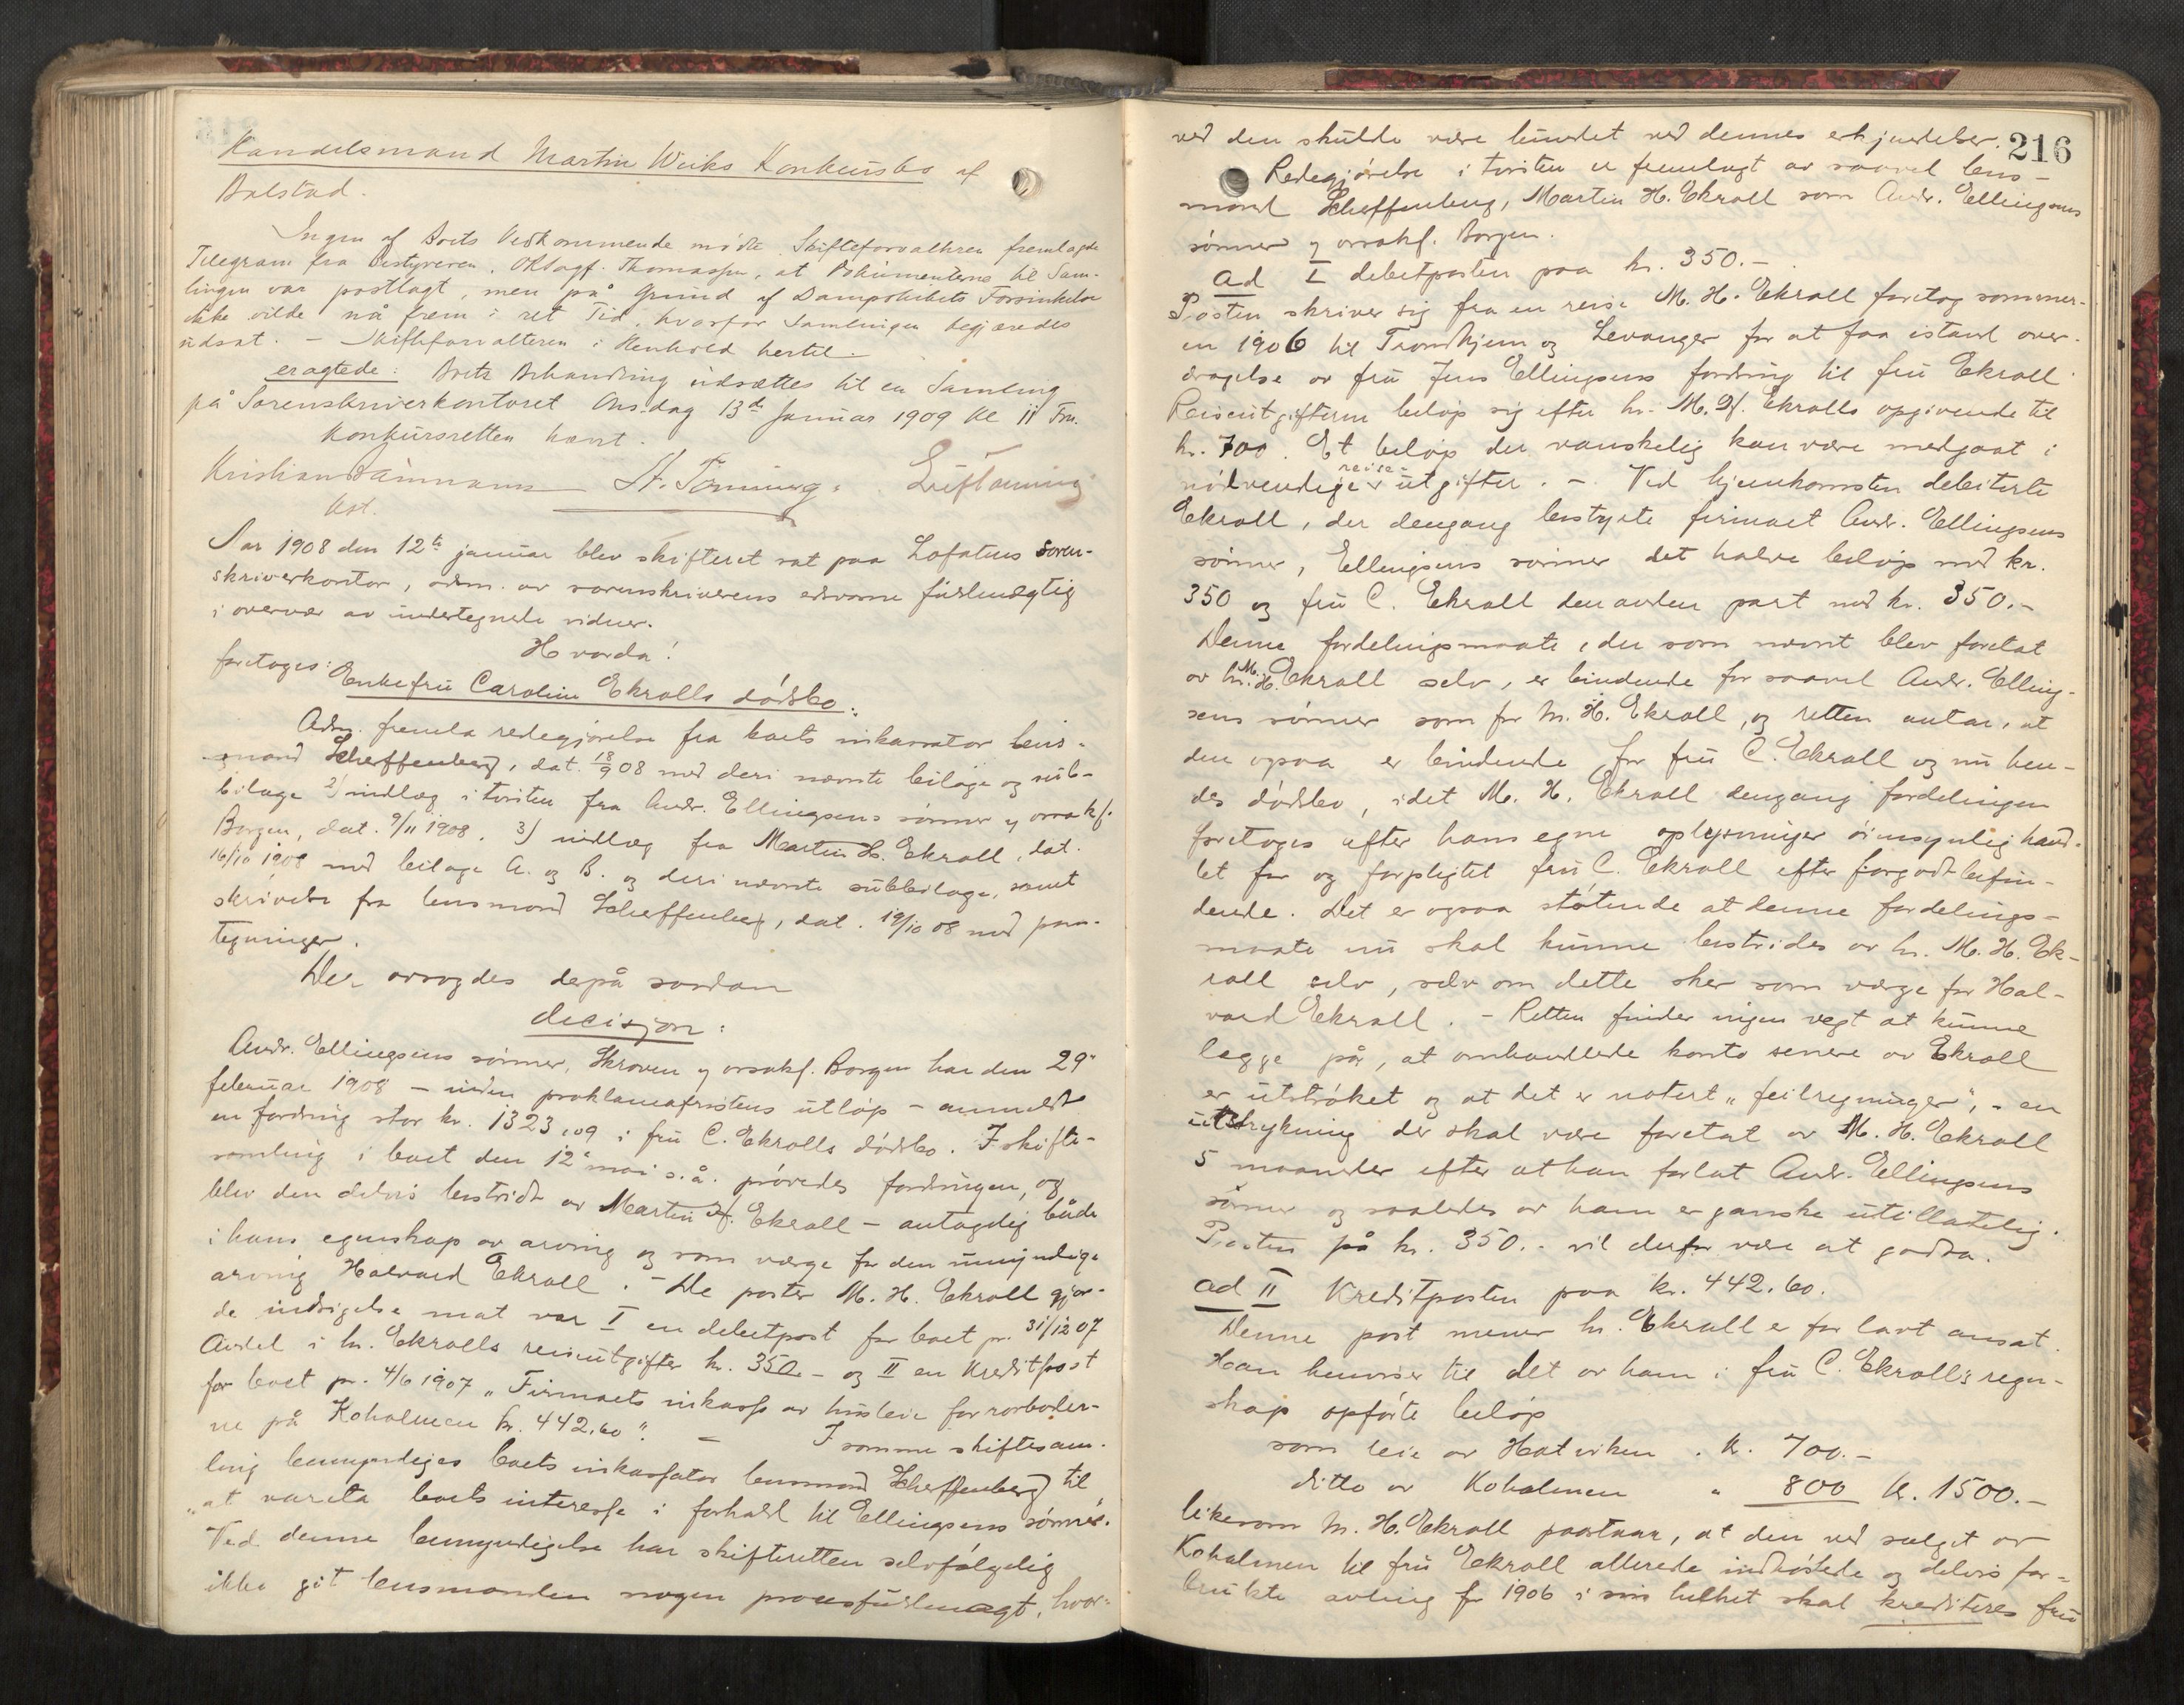 Handelsmand Martin Wiiks Konkursbo af
Balstad.
Ingen af Boets Vedkommende mødte. Skifteforvalteren fremlagde
Telegram fra Bestyreren, O.r.sagf. Thomassen, at Dokumenterne til Sam-
lingen var postlagt, men på Grund af Dampskibets Forsinkelse
ikke vilde nå frem i ret Tid, hvorfor Samlingen begjæredes
udsat. - Skifteforvalteren i Henhold hertil
eragtede: Boets Behandling udsættes til en Samling
på Sorenskriverkontoret Onsdag 13de Januar 1909 Kl 11 Fm.
Konkursretten hævet.
Kristian Dammann
Kst.
Aar 1908 den 12te januar blev skifteret sat paa Lofotens soren-
skriverkontor, adm. av sorenskriverens edsvorne fuldmægtig
i overvær av undertegnede vidner.
Hvorda!
foretoges: Enkefru Caroline Ekrolls dødsbo:
Adm. fremla redegjørelse fra boets inkassator lens-
mand Scheffenberg, dat. 18/9 08 med deri nævnte bilage og sub-
bilage 2) indlæg i tvisten fra Andr. Ellingsens sønner v/ orsakf.
Borgen, dat. 9/11 1908. 3) indlæg fra Martin H. Ekroll, dat.
16/10 1908 med bilage A. og B. og deri nævnte subbilage, samt
skrivelse fra lensmand Scheffenberg, dat. 19/10 08 med paa-
tegninger.
Der avsagdes derpå saadan
decisjon:
Andr. Ellingsens sønner, Skroven v/ orsakf. Borgen har den 29de
februar 1908 - inden proklamafristens utløp - anmeldt
en fordring stor kr. 1323,09 i fru C. Ekrolls dødsbo. I skifte-
samling i boet den 12te mai s.å. prøvedes fordringen, og
blev den delvis bestridt av Martin H. Ekroll - antagelig både
i hans egenskap av arving og som værge for den umyndige
arving Halvard Ekroll. - De poster M. H. Ekroll gjor-
de indsigelse mot var I en debetpost for boet pr. 31/12 07
Andel i hr. Ekrolls reiseutgifter kr. 350.- og II en Kreditpost
for boet pr. 4/6 1907 "Firmaets inkasso av husleie for rorboder-
ne på Koholmen kr. 442,60". - I samme skiftesam-
ling bemyndiges boets inkassator lensmand Scheffenberg til
"at vareta boets interesse i forhold til Ellingsens sønner".
Ved denne bemyndigelse har skifteretten selvfølgelig
ikke git lensmanden nogen procesfuldmagt, hvor-
216
ved den skulde være bundet ved dennes erkjendelser.
Redegjørelse i tvisten er fremlagt av saavel lens-
mand Scheffenberg, Martin H. Ekroll som Andr. Ellingsens
sønner v/ orsakf. Borgen.
ad I debetposten paa kr. 350.-.
Posten skriver sig fra en reise M. H. Ekroll foretog sommer-
en 1906 til Trondhjem og Levanger for at faa istand over-
dragelse av fru Jens Ellingsens fordring til fru Ekroll.
Reiseutgifterne beløp sig efter hr. M. H. Ekrolls opgivende til
kr. 700. Et beløp der vanskelig kan være medgaat i
nødvendige reise-utgifter. - Ved hjemkomsten debiterte
Ekroll, der dengang bestyrte firmaet Andr. Ellingsens
sønner, Ellingsens sønner det halve beløp med kr.
350 og fru C. Ekroll den anden part med kr. 350.-
Denne fordelingsmaate, der som nævnt blev foretat
av hr. M. H. Ekroll selv, er bindende for saavel Andr. Elling-
sens sønner som for M. H. Ekroll, og retten antar, at
den ogsaa er bindende for fru C. Ekroll og nu hen-
des dødsbo, idet M. H. Ekroll dengang fordelingen
foretoges efter hans egne oplysninger øiensynlig hand-
let for og forpligtet fru C. Ekroll efter forgodtbefin-
dende. Det er ogsaa støtende at denne fordelings-
maate nu skal kunne bestrides av hr. M. H. Ek-
roll selv, selv om dette sker som værge for Hal-
vard Ekroll. - Retten finder ingen vegt at kunne
lægge på, at omhandlede konto senere av Ekroll
er utstrøket og at det er notert "feilregninger", - en
utstrykning der skal være foretat av M. H. Ekroll
5 maaneder efter at han forlat Andr. Ellingsens
sønner og saaledes av ham er ganske utilladelig.
Posten på kr. 350.- vil derfor være at godta.
ad II Kreditposten paa kr. 442.60.
Denne post mener hr. Ekroll er for lavt ansat.
Han henviser til det av ham i fru C. Ekroll's regn-
skap opførte beløp
som leie av Hatviken . kr. 700.-
ditto av Koholmen " 800 kr. 1500.-
likesom M. H. Ekroll paastaar, at den ved salget av
Koholmen til fru Ekroll allerede indhøstede og delvis for-
brukte avling for 1906 i sin helhet skal krediteres fru